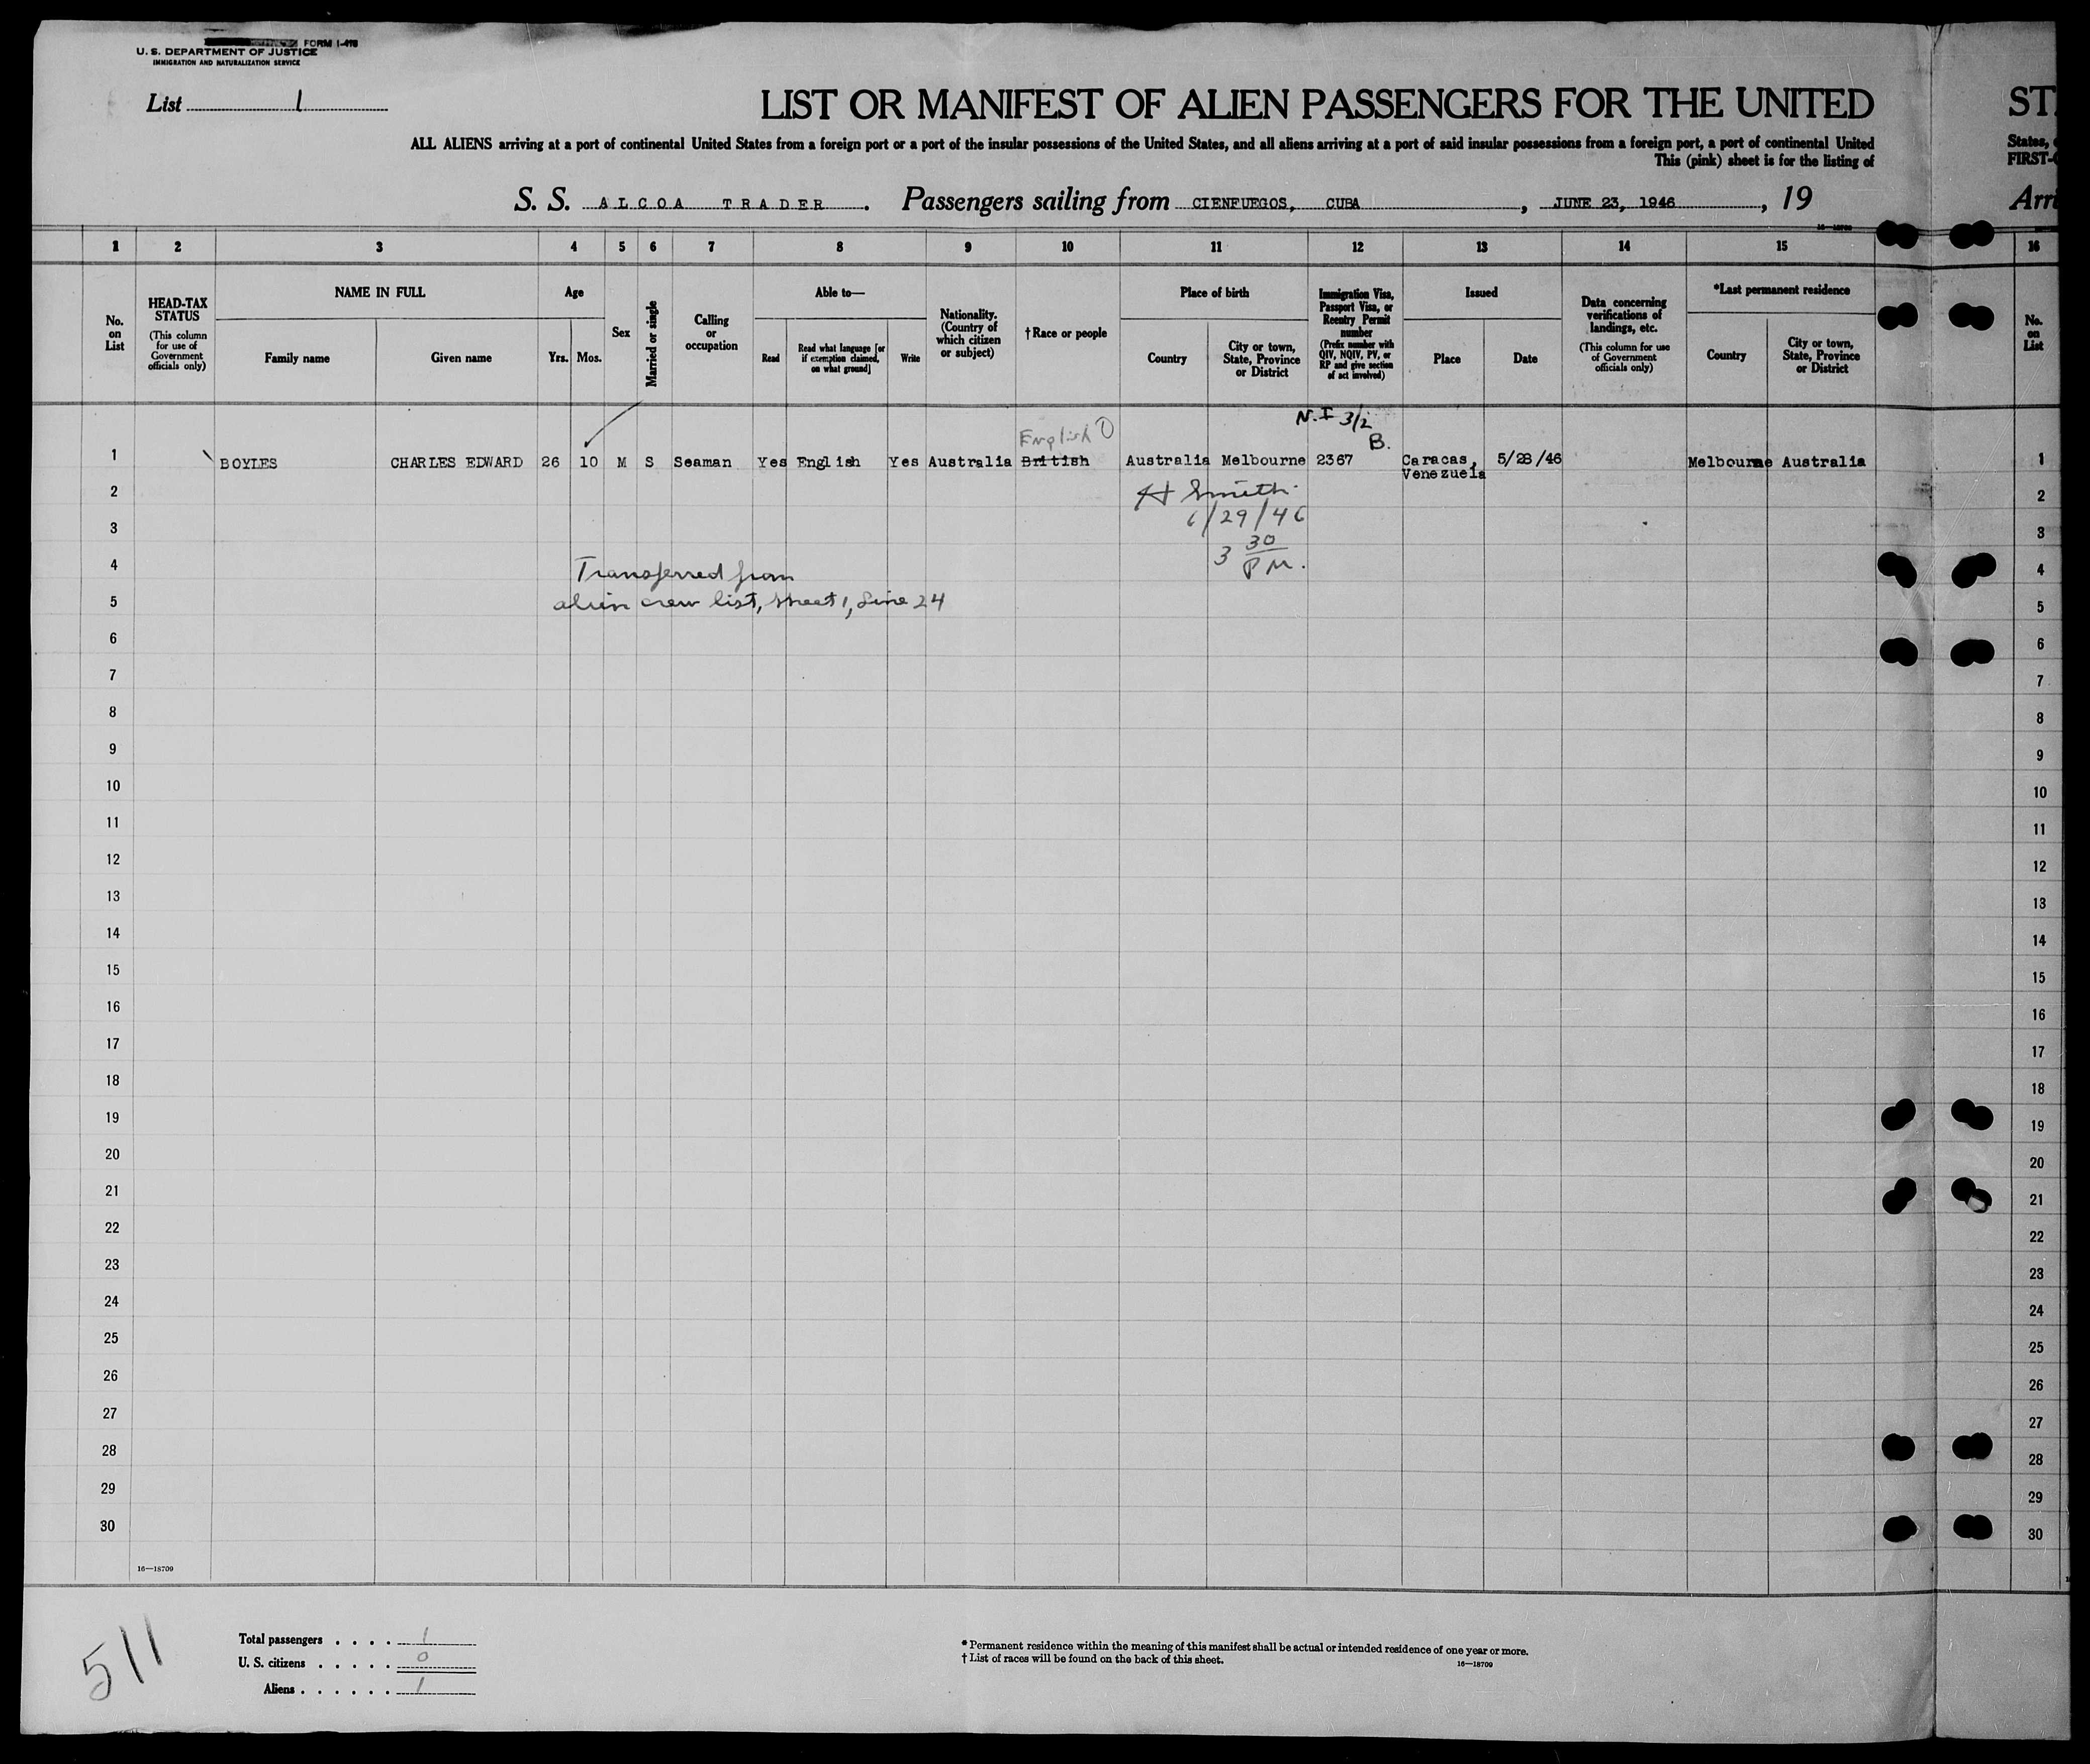 FORM I-418
U. S. DEPARTMENT OF JUSTICE
IMMIGRATION AND NATURALIZATION SERVICE
List 1
LIST OR MANIFEST OF ALIEN PASSENGERS FOR THE UNITED
ALL ALIENS arriving at a port of continental United States from a foreign port or a port of the insular possessions of the United States, and all aliens arriving at a port of said insular possessions from a foreign port, a port of continental United
This (pink) sheet is for the listing of
S. S. ALCOA TRADER. Passengers sailing from CIENFUEGOS, CUBA, JUNE 23, 1946, 19
ST
States,
FIRST-
Arri
16—18709
1 2 3 4 5 6 7 8 9 10 11 12 13 14 15 16
No. on List
HEAD-TAX STATUS
(This column for use of Government officials only)
NAME IN FULL
Family name
Given name
Age
Yrs.
Mos.
Sex
Married or single
Calling or occupation
Able to—
Read
Read what language [or if exemption claimed, on what ground]
Write
Nationality. (Country of which citizen or subject)
†Race or people
Place of birth
Country
City or town, State, Province or District
Immigration Visa, Passport Visa, or Reentry Permit number
(Prefix number with QIV, NQIV, PV, or RP and give section of act involved)
Issued
Place
Date
Data concerning verifications of landings, etc.
(This column for use of Government officials only)
*Last permanent residence
Country
City or town, State, Province or District
No. on List
N. I 3/2
English 1
B.
1 BOYLES CHARLES EDWARD 26 10 M S Seaman Yes English Yes Australia British Australia Melbourne 2367 Caracas, 5/28/46 Melbourne Australia 1
Venezuela
2 H Smith 2
3 6/29/46 3
3 30
4 Transferred from PM. 4
5 alien crew list, sheet 1, Line 24 5
6 6
7 7
8 8
9 9
10 10
11 11
12 12
13 13
14 14
15 15
16 16
17 17
18 18
19 19
20 20
21 21
22 22
23 23
24 24
25 25
26 26
27 27
28 28
29 29
30 30
16—18709
511
Total passengers . . . . 1
U. S. citizens . . . . . 0
Aliens . . . . . . 1
* Permanent residence within the meaning of this manifest shall be actual or intended residence of one year or more.
† List of races will be found on the back of this sheet.
16—18709